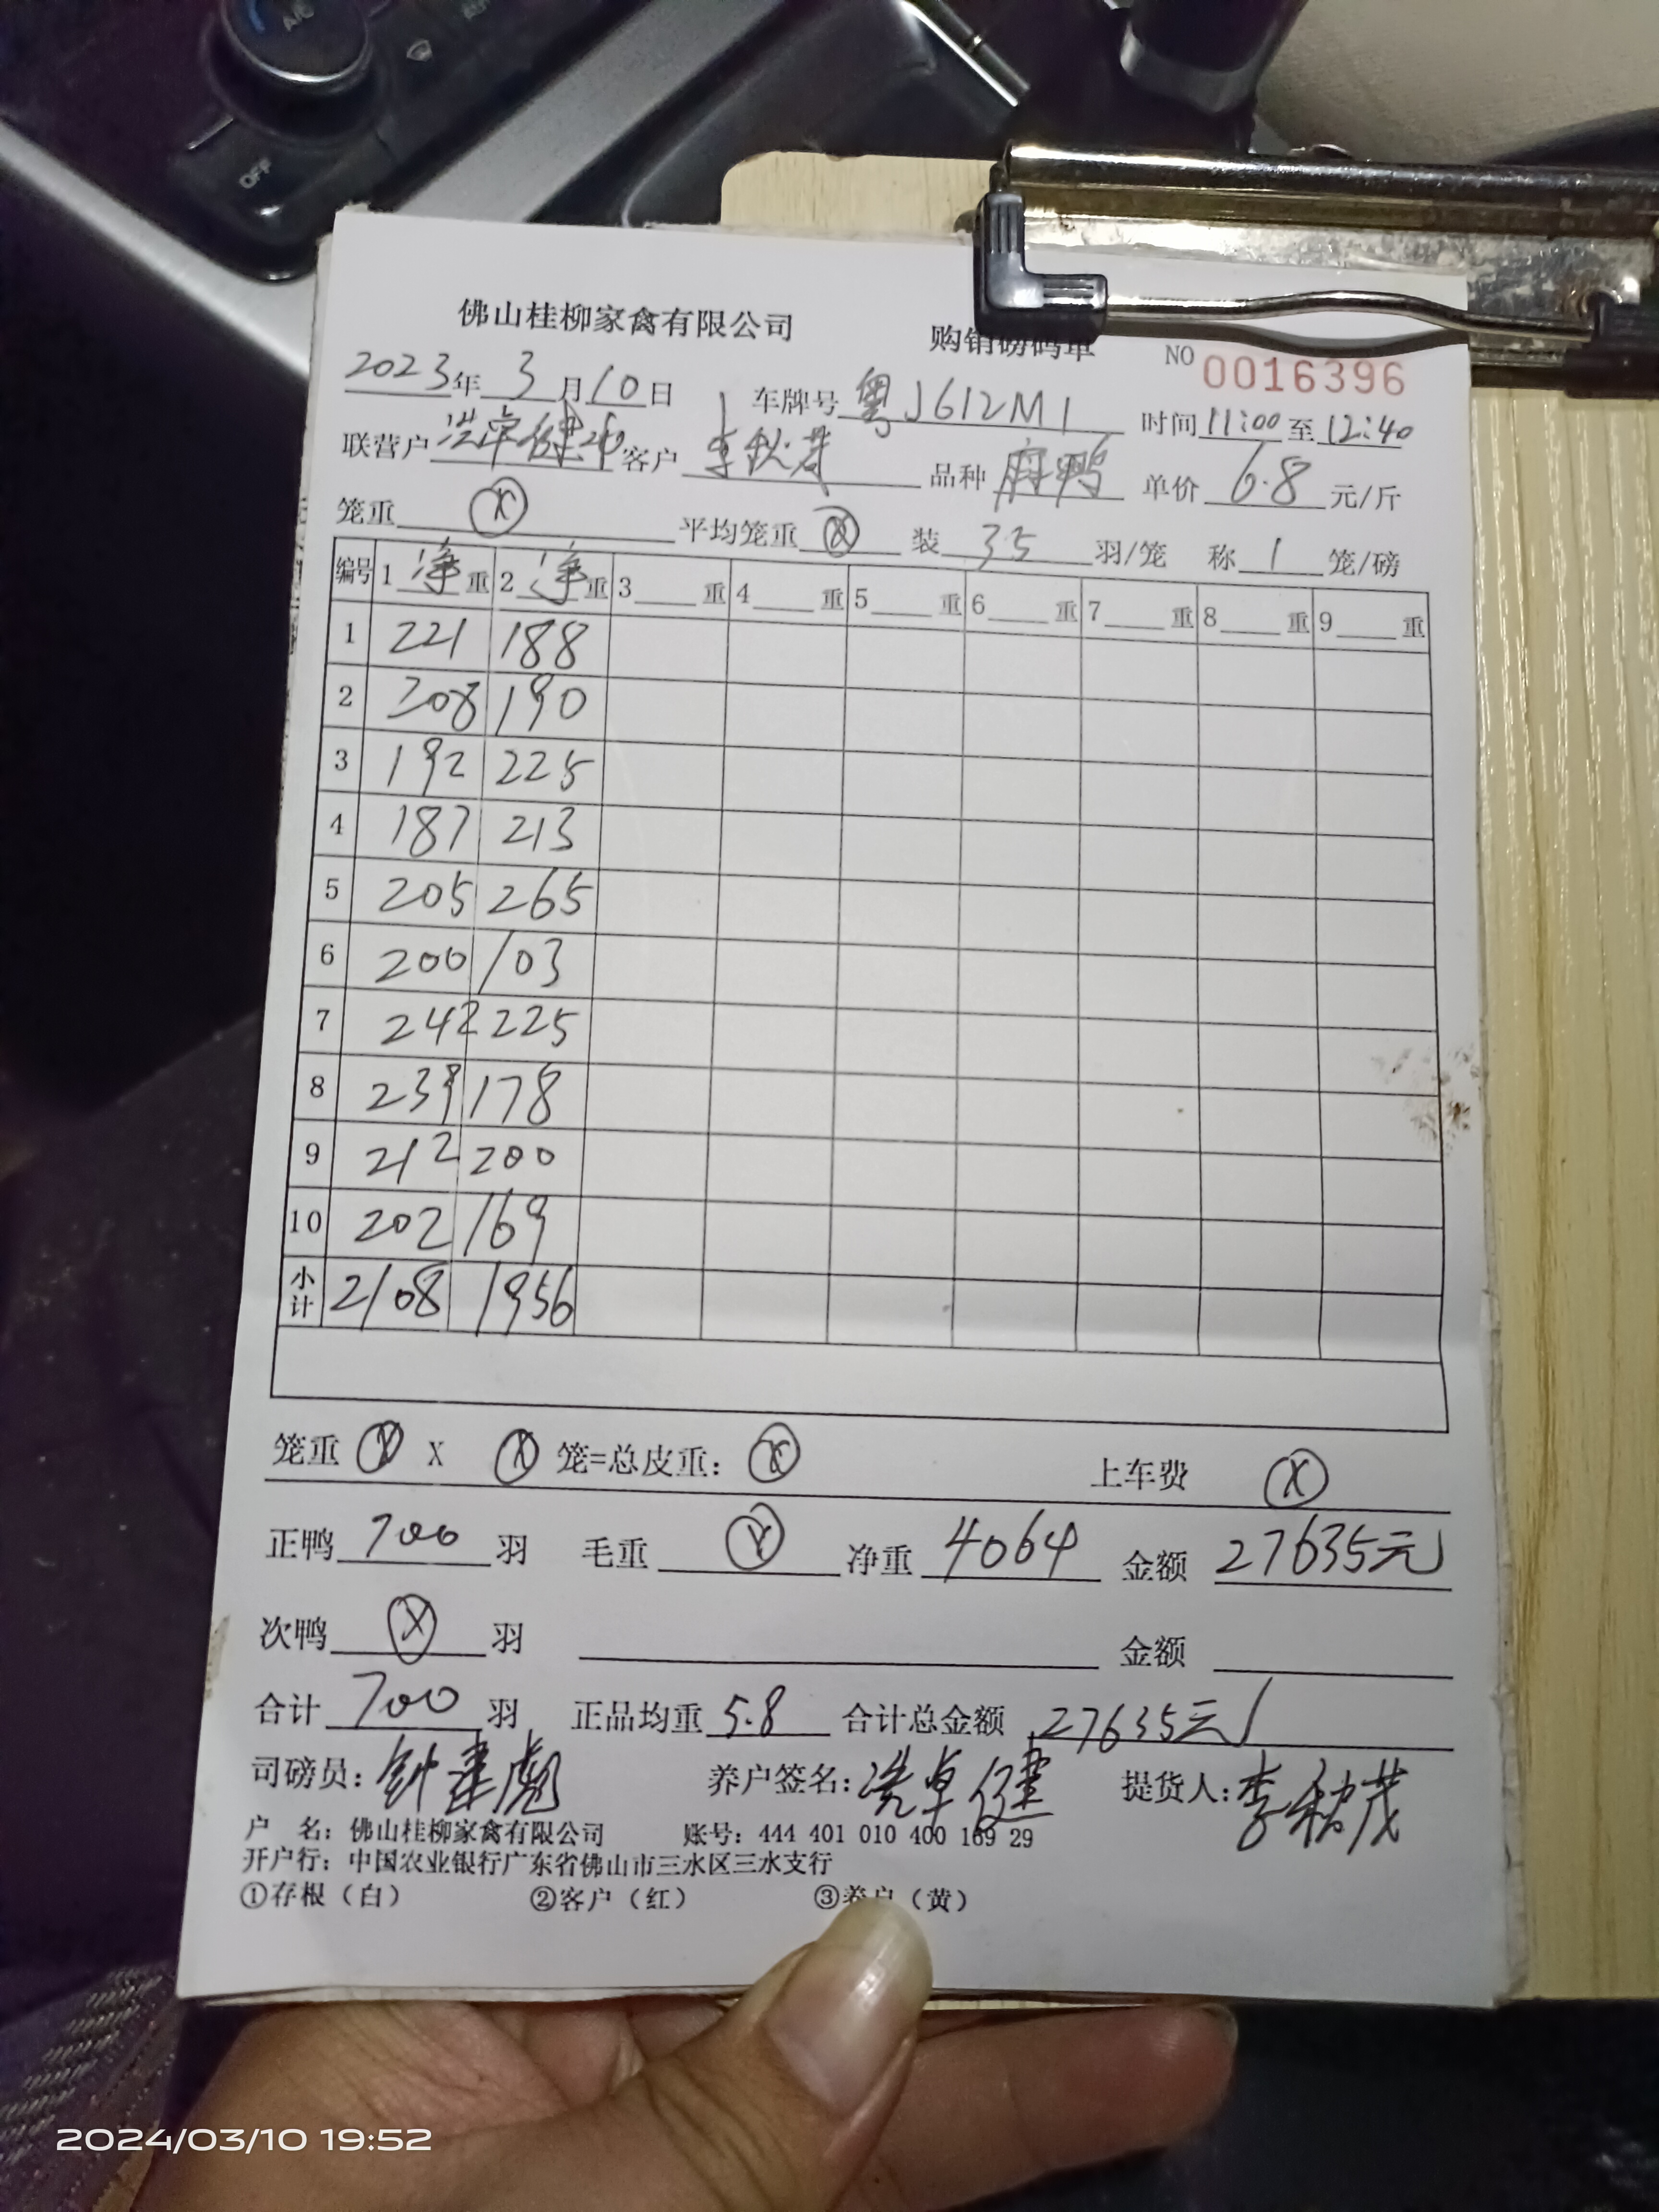 A/C
OFF
佛山桂柳家禽有限公司 购销磅码单 NO 0016396
2023年 3月10日 车牌号 粤J612M1 时间 11:00 至 12:40
联营户 冼卓健 客户 李秋茂 品种 麻鸭 单价 6.8 元/斤
笼重 ⓧ 平均笼重 ⓧ 装 35 羽/笼 称 1 笼/磅
编号 1 净 重 2 净 重 3 重 4 重 5 重 6 重 7 重 8 重 9 重
1 221 188
2 208 190
3 192 225
4 187 213
5 205 265
6 200 103
7 242 225
8 239 178
9 212 200
10 202 169
小计 2108 1956
笼重 ⓧ X ⓧ 笼=总皮重: ⓧ 上车费 ⓧ
正鸭 700 羽 毛重 ⓧ 净重 4064 金额 27635元
次鸭 ⓧ 羽 金额
合计 700 羽 正品均重 5.8 合计总金额 27635元
司磅员: 钟建彪 养户签名: 冼卓健 提货人: 李秋茂
户 名: 佛山桂柳家禽有限公司 账号: 444 401 010 400 169 29
开户行: 中国农业银行广东省佛山市三水区三水支行
①存根（白） ②客户（红） ③养户（黄）
2024/03/10 19:52